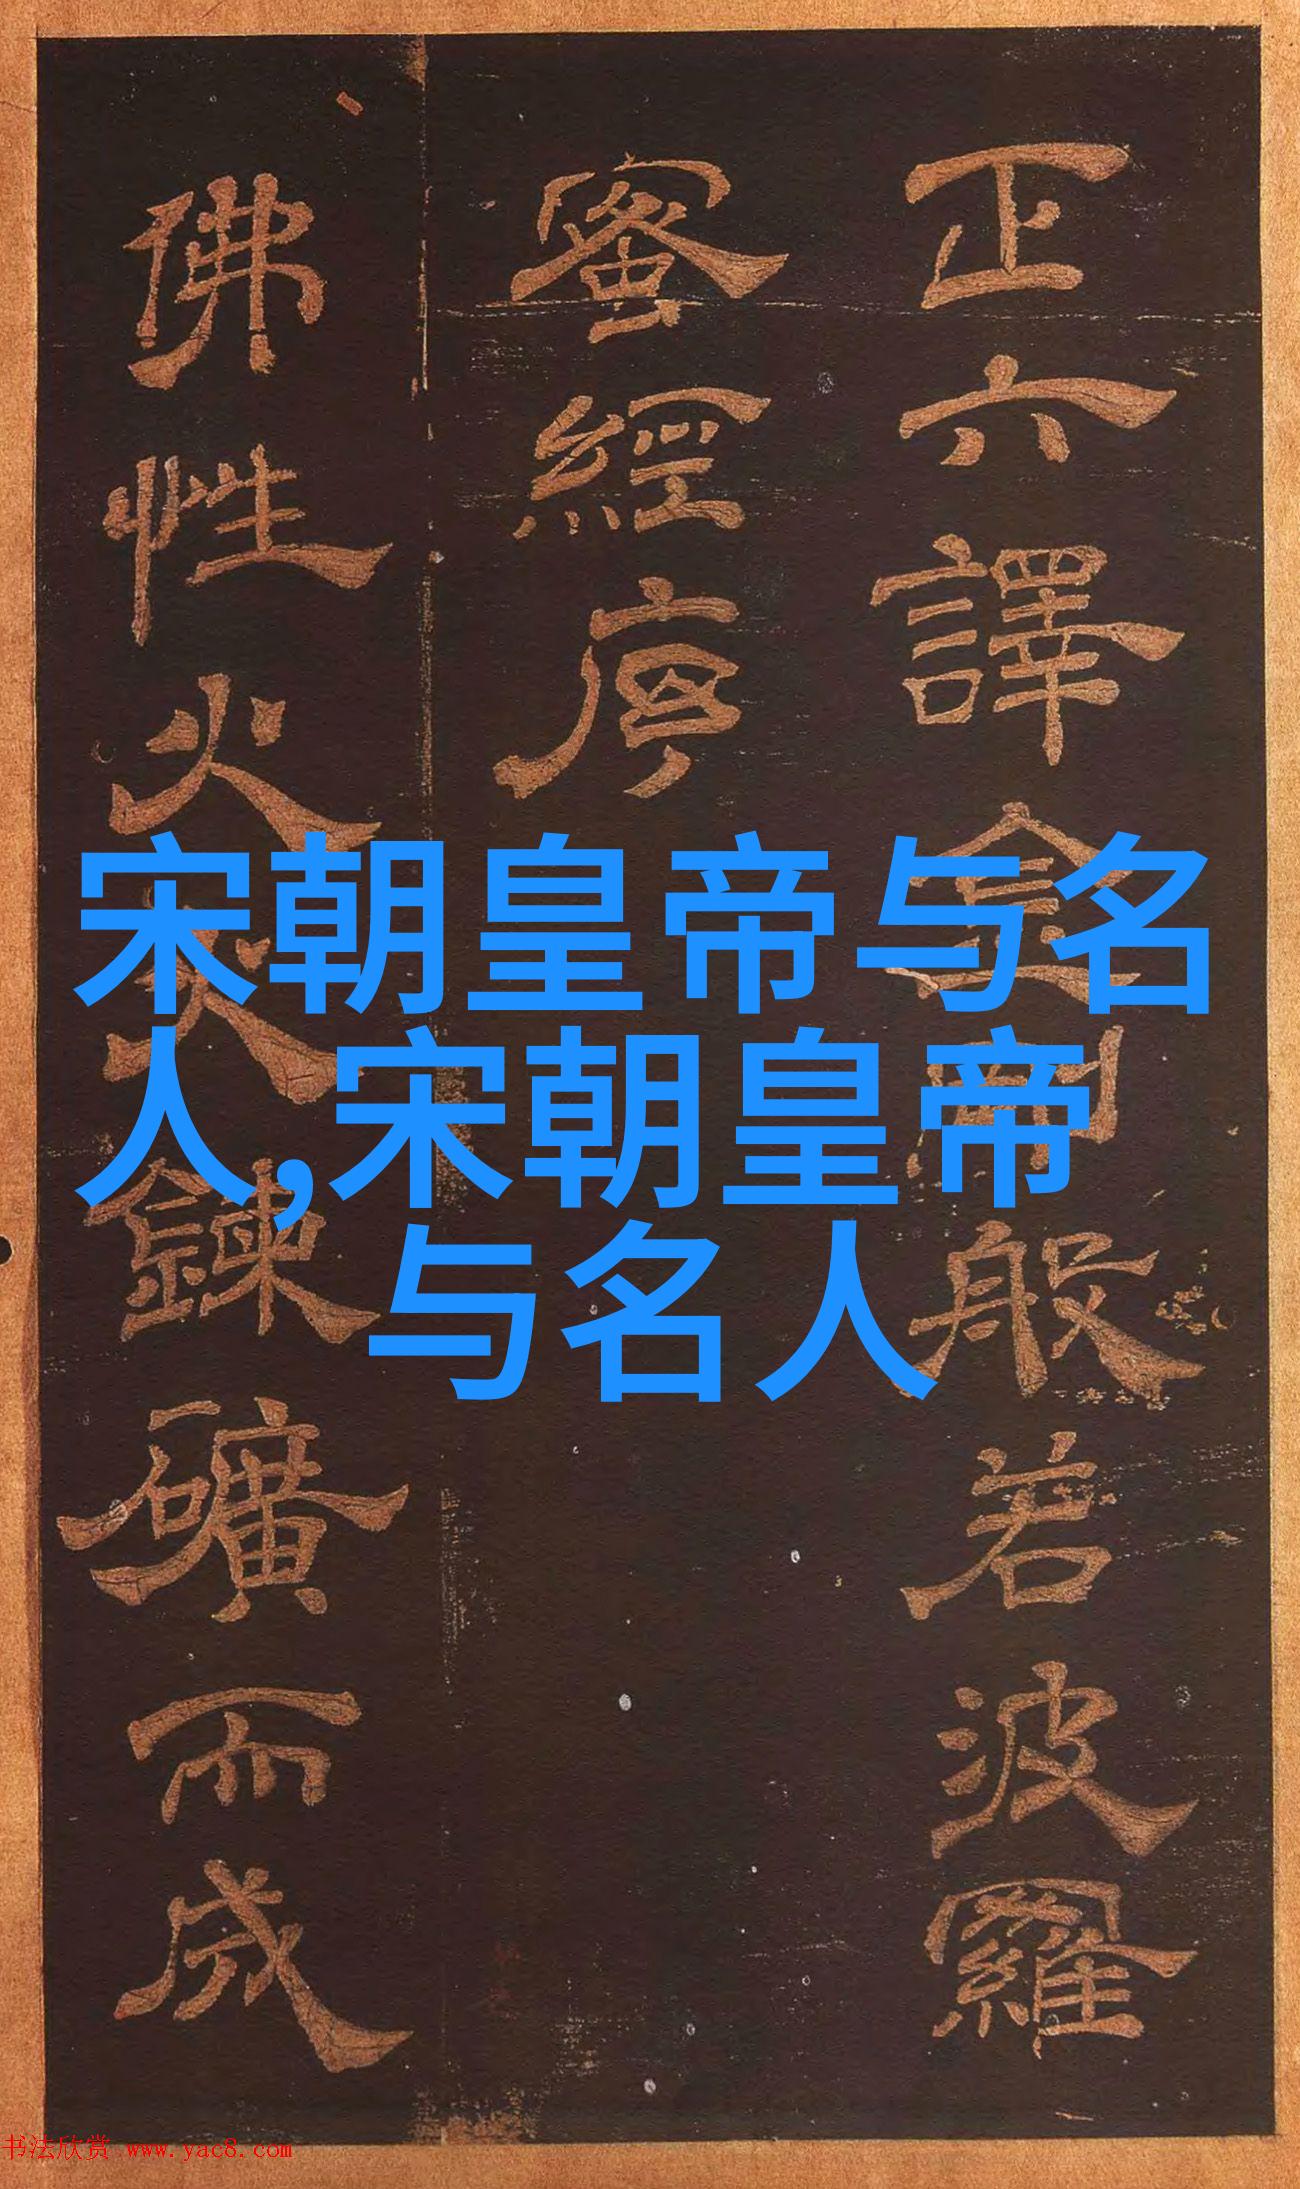 正六譯金剛般若波羅
蜜經序
佛性火鍊礦而成
宋朝皇帝与名
人,宋朝皇帝
与名人
书法欣赏 www.yac8.com